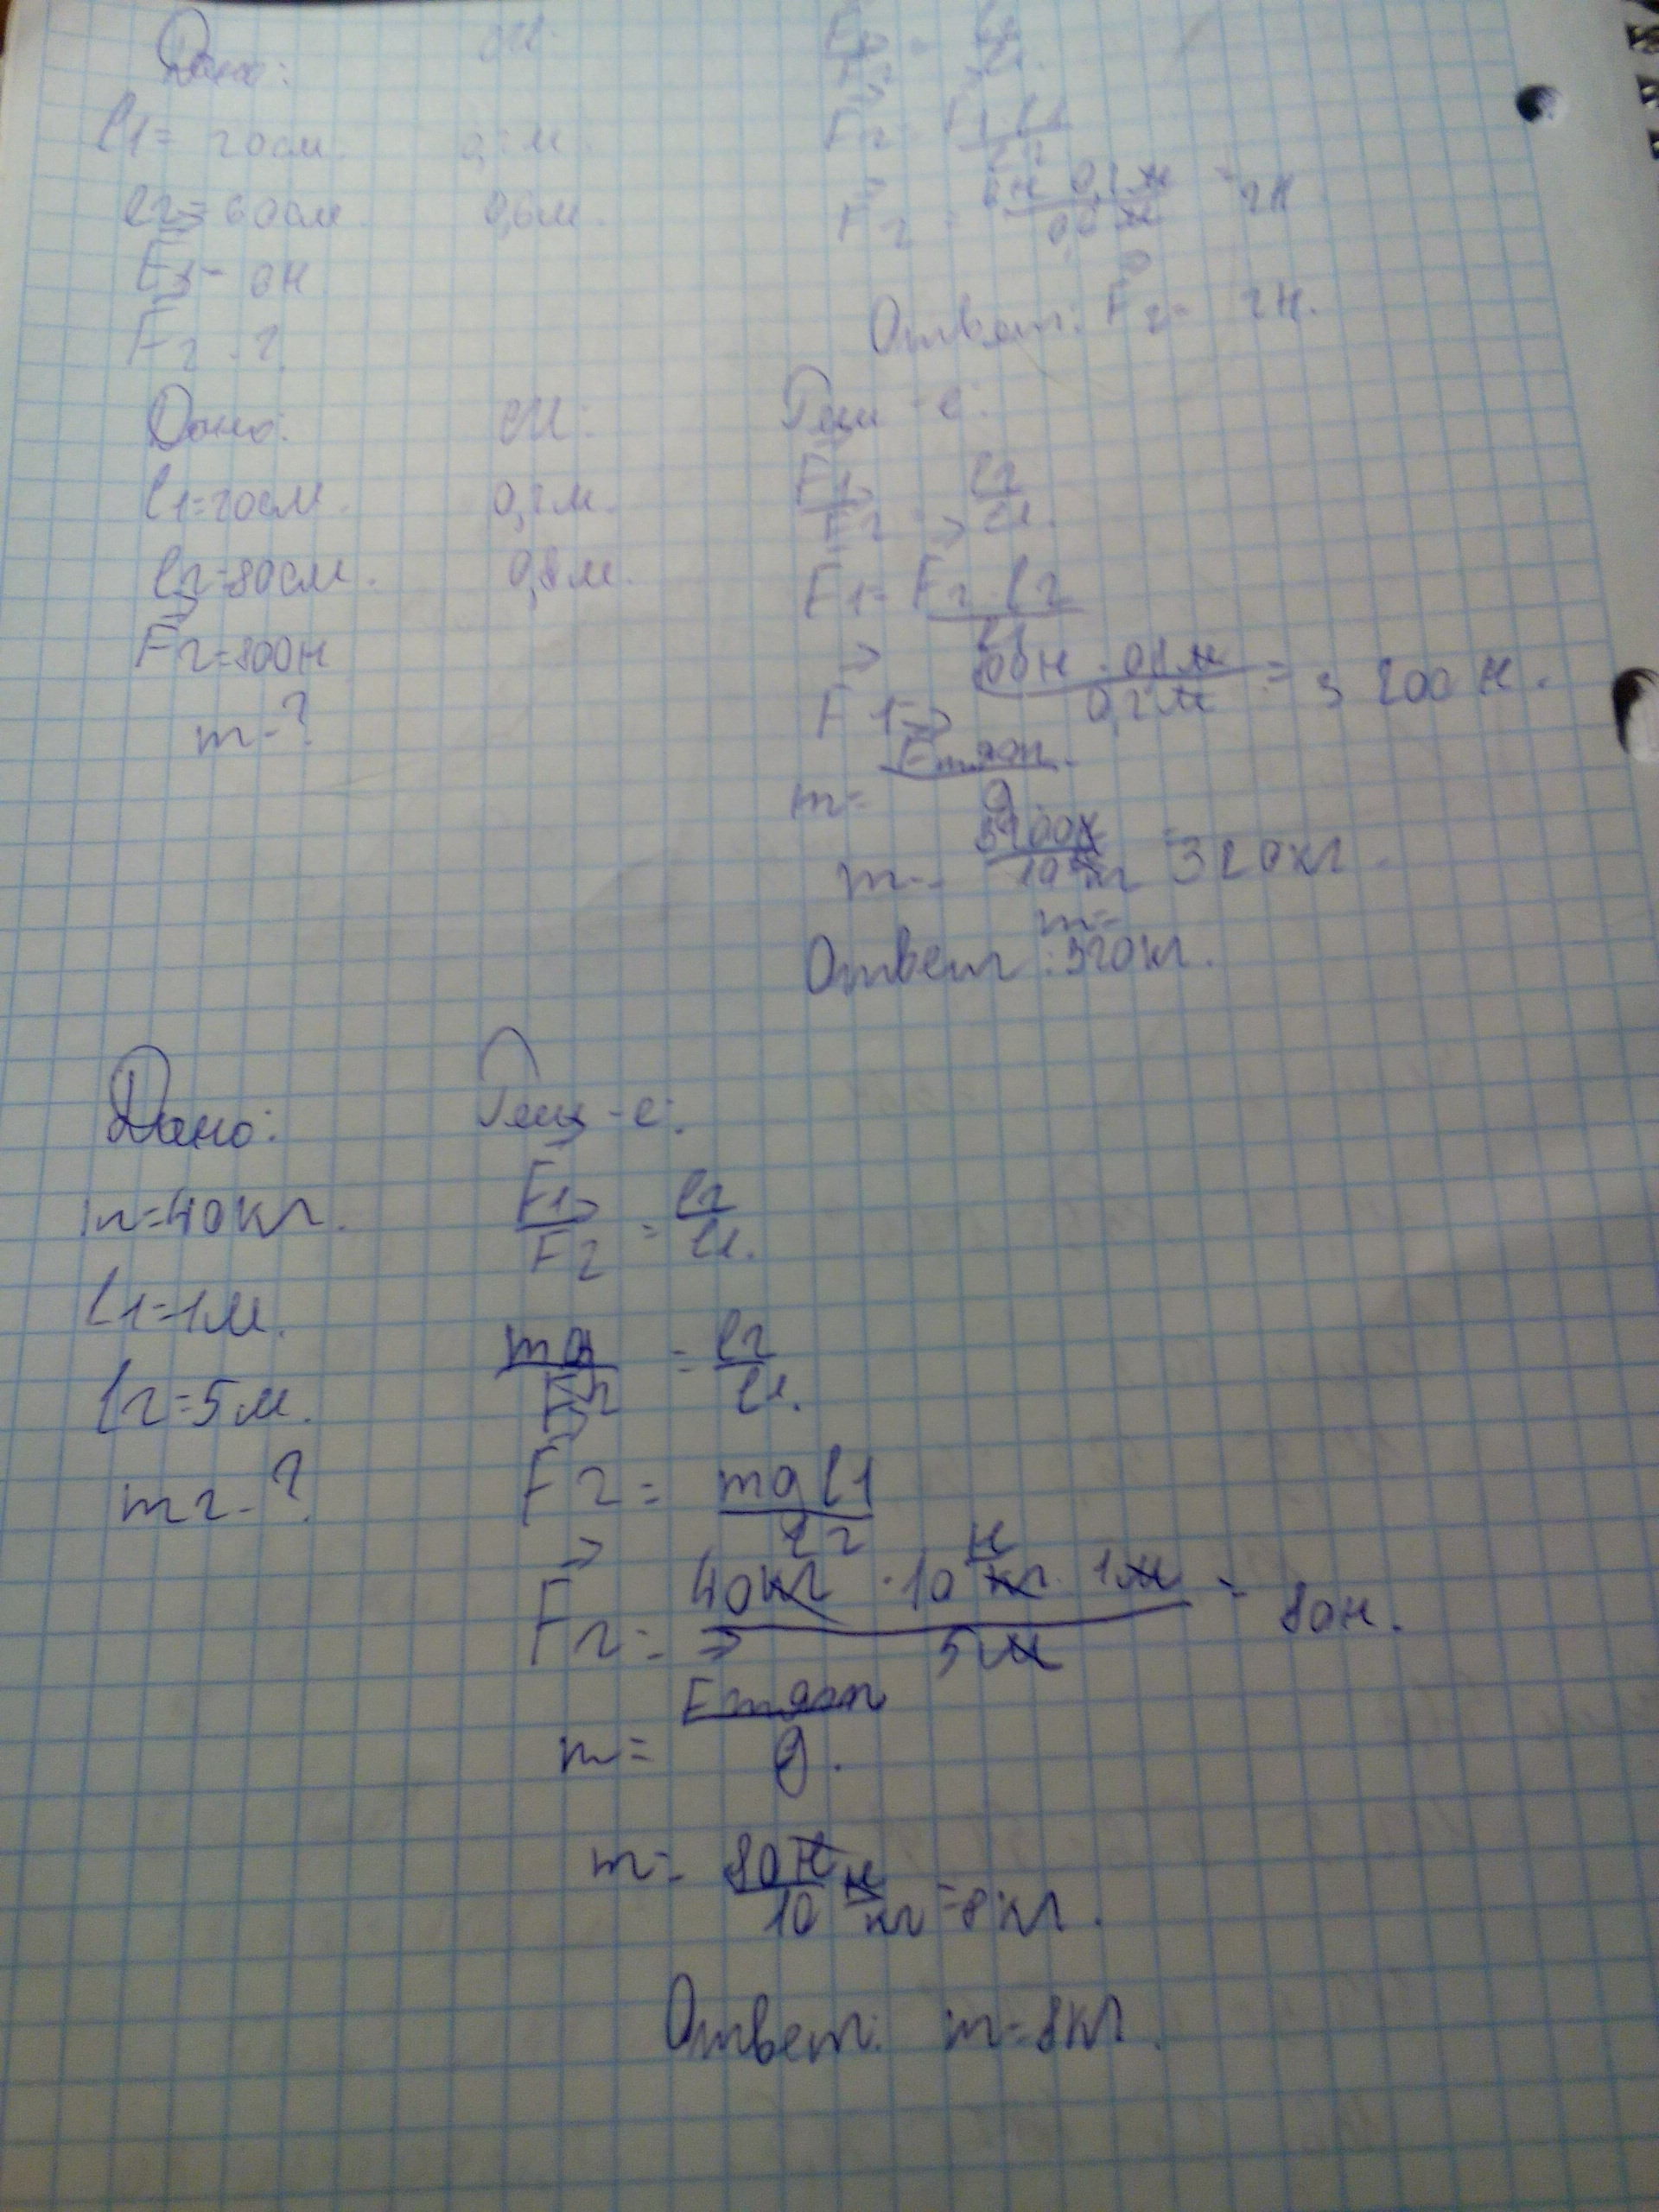 Дано: СИ:
l1= 20см. 0,2м.
l2=60см. 0,6м.
F1= 6Н
F2 - ?
F1/F2 = l2/l1.
F2= F1·l1/l2
F2 = 6Н 0,2м/0,6м = 2Н
Ответ: F2= 2Н.
Дано: СИ: Реш-е:
l1=20см. 0,2м.
l2=80см. 0,8м.
F2=800Н
m-?
F1/F2 = l2/l1.
F1= F2·l2/l1
F1= 800Н·0,8м/0,2м = 3200Н.
m= Fтяж/g.
m= 3200Н/10 Н/кг =320кг.
Ответ: m= 320кг.
Дано: Реш-е:
m=40кг.
l1=1м.
l2=5м.
m2-?
F1/F2 = l2/l1.
mg/F2 = l2/l1.
F2= mgl1/l2
F2= 40кг·10 Н/кг·1м/5м = 80Н.
m= Fтяж/g.
m= 80Н/10 Н/кг =8кг.
Ответ: m=8кг.